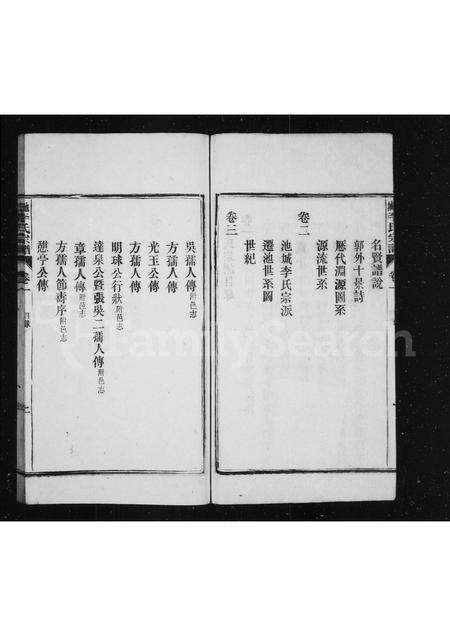 名賢譜說
郭外十景詩
歷代淵源圖系
源流世系
卷二
池城李氏宗派
遷池世系圖
世紀
卷三
吳孺人傳附邑志
方孺人傳
光玉公傳
方孺人傳
明球公行狀附邑志
達泉公暨張吳二孺人傳附邑志
章孺人傳附邑志
方孺人節壽序附邑志
憩亭公傳
李氏宗譜
卷一
目錄
FamilySearch